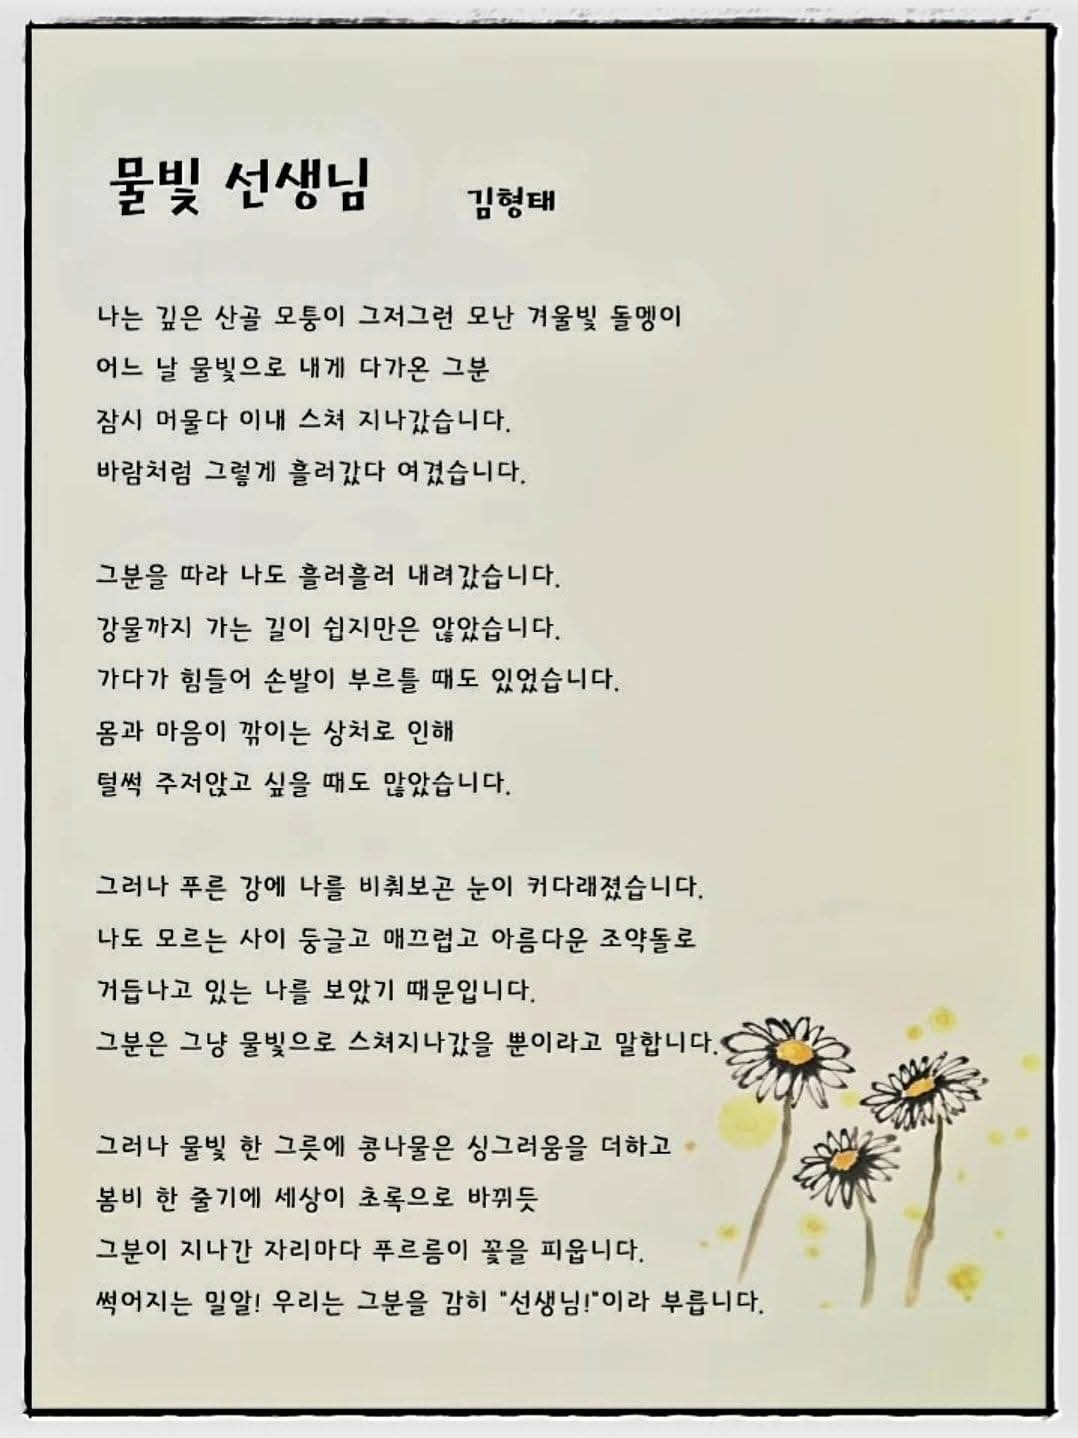 물빛 선생님 김형태
나는 깊은 산골 모퉁이 그저그런 모난 겨울빛 돌멩이
어느 날 물빛으로 내게 다가온 그분
잠시 머물다 이내 스쳐 지나갔습니다.
바람처럼 그렇게 흘러갔다 여겼습니다.
그분을 따라 나도 흘러흘러 내려갔습니다.
강물까지 가는 길이 쉽지만은 않았습니다.
가다가 힘들어 손발이 부르틀 때도 있었습니다.
몸과 마음이 깎이는 상처로 인해
털썩 주저앉고 싶을 때도 많았습니다.
그러나 푸른 강에 나를 비춰보곤 눈이 커다래졌습니다.
나도 모르는 사이 둥글고 매끄럽고 아름다운 조약돌로
거듭나고 있는 나를 보았기 때문입니다.
그분은 그냥 물빛으로 스쳐지나갔을 뿐이라고 말합니다.
그러나 물빛 한 그릇에 콩나물은 싱그러움을 더하고
봄비 한 줄기에 세상이 초록으로 바뀌듯
그분이 지나간 자리마다 푸르름이 꽃을 피웁니다.
썩어지는 밀알! 우리는 그분을 감히 "선생님!"이라 부릅니다.